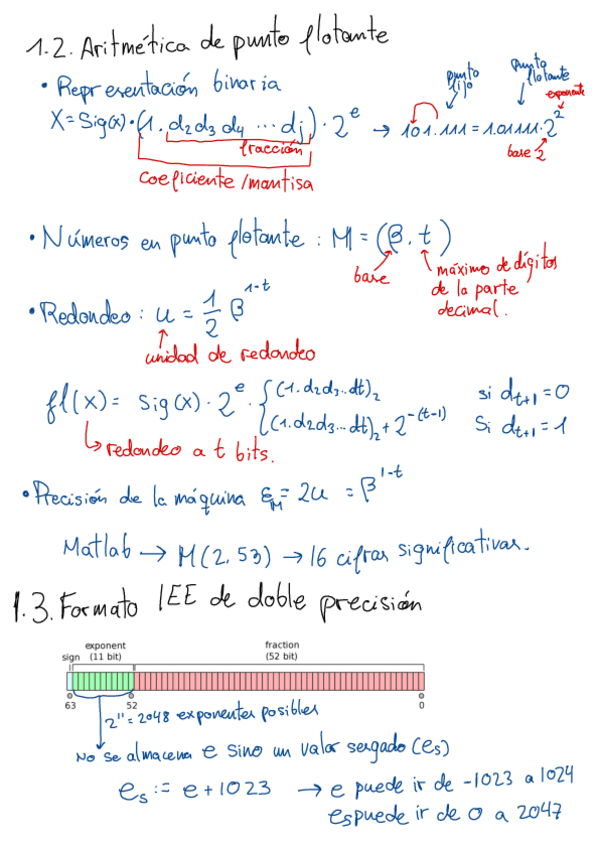 1.2. Aritmética de punto flotante
• Representación binaria
punto fijo
punto flotante
exponente
X = Sig(x)·(1. d2 d3 d4 ... dj)·2^e → 101.111 = 1.01111·2^2
fracción
base 2
coeficiente/mantisa
• Números en punto flotante : M = (β, t)
base
máximo de dígitos
de la parte
decimal.
• Redondeo : u = 1/2 β^1-t
unidad de redondeo
fl(x) = Sig(x)·2^e · { (1.d2d3...dt)2 si dt+1 = 0
(1.d2d3...dt)2 + 2^-(t-1) Si dt+1 = 1
redondeo a t bits.
• Precisión de la máquina εM = 2u = β^1-t
Matlab → M(2, 53) → 16 cifras significativas.
1.3. Formato IEE de doble precisión
sign
exponent
(11 bit)
fraction
(52 bit)
63 52 0
2^11 = 2048 exponentes posibles
No se almacena e sino un valor sesgado (es)
es := e + 1023 → e puede ir de -1023 a 1024
es puede ir de 0 a 2047